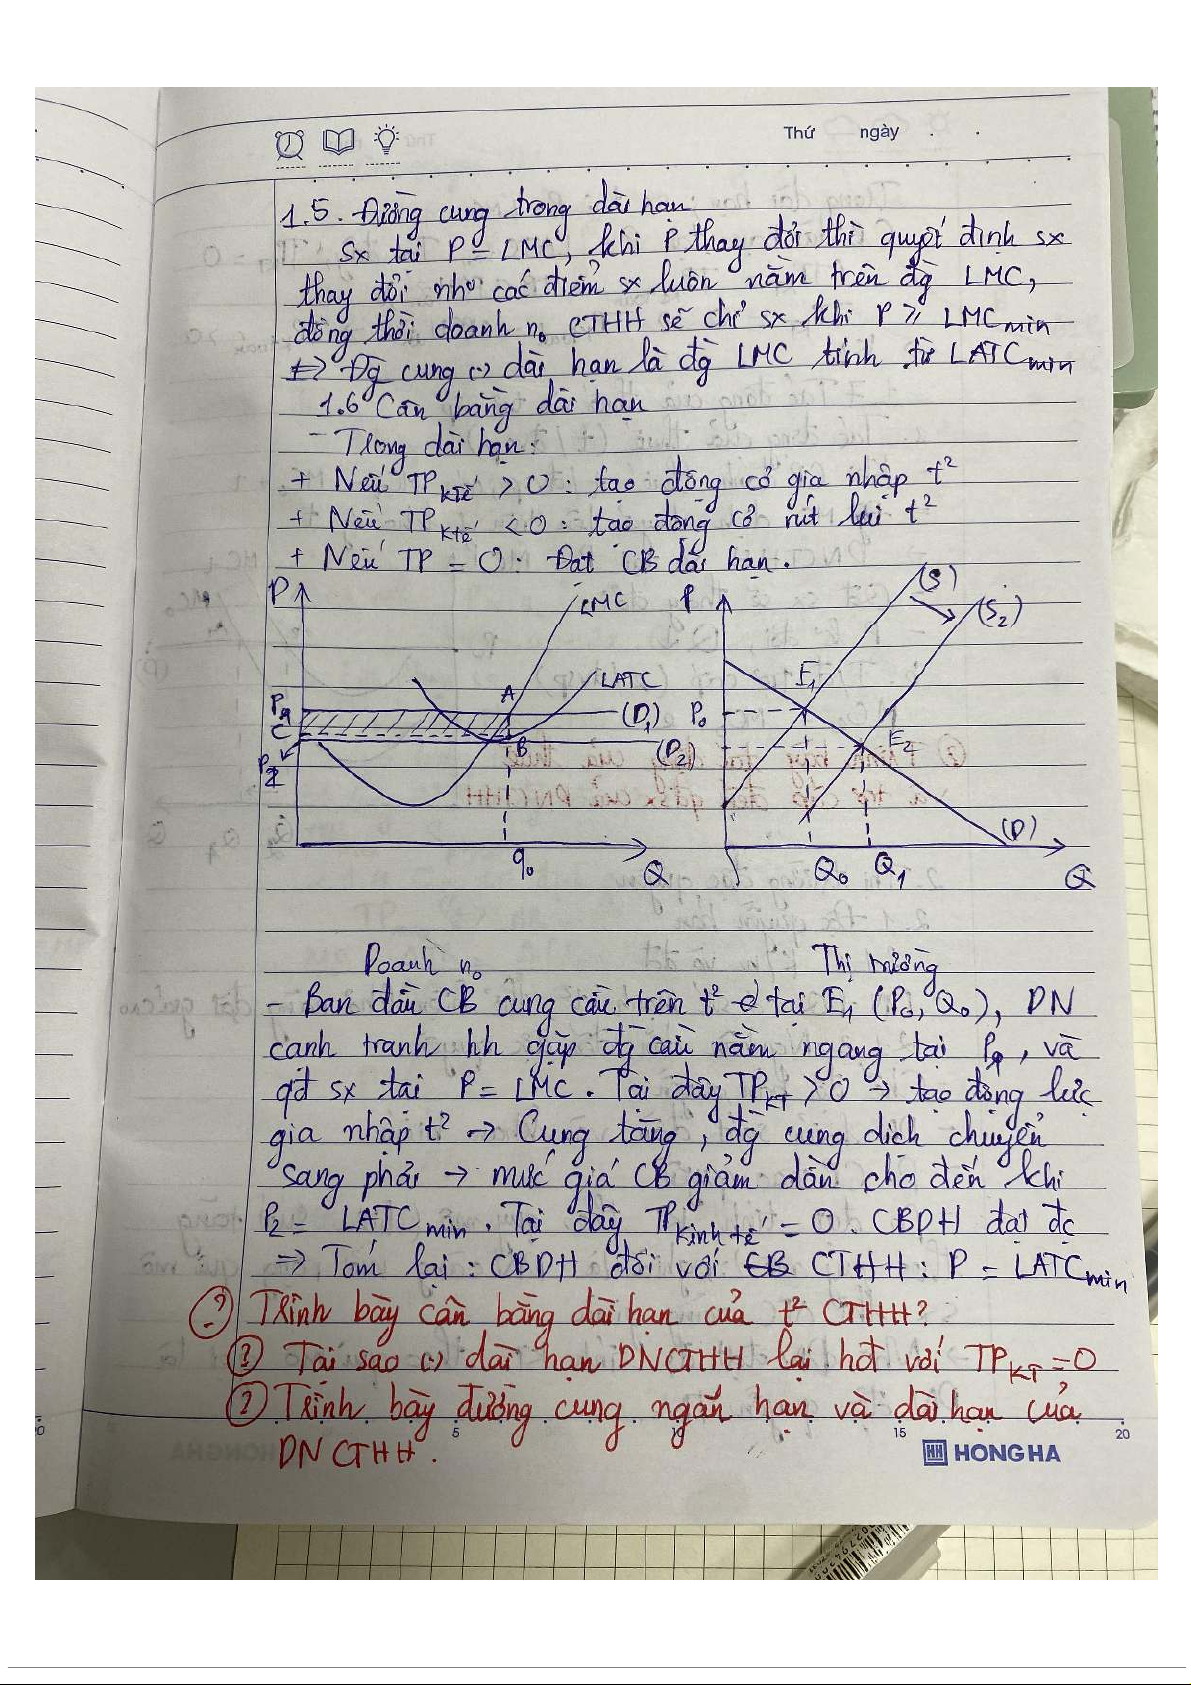 Thứ ngày . .
1.5. Đường cung trong dài hạn
Sx tại P = LMC, khi P thay đổi thì quyết định sx
thay đổi nhơ các điểm sx luôn nằm trên đg LMC,
đồng thời doanh n₀ CTHH sẽ chỉ sx khi P ≥ LMC min
<=> Đg cung (.) dài hạn là đg LMC tính từ LATC min
1.6 Cân bằng dài hạn
- Trong dài hạn:
+ Nếu TP Ktế > 0 : tạo động cơ gia nhập t²
+ Nếu TP Ktế < 0 : tạo động cơ rút lui t²
+ Nếu TP = 0 : Đạt CB dài hạn.
P LMC P (S) (S₂)
LATC E₁
A
P₁ (D₁) P₀
C B (D₂) E₂
P₂
(D)
q₀ Q Q₀ Q₁ Q
Doanh n₀ Thị trường
- Ban đầu CB cung cầu trên t² tại E₁ (P₀, Q₀), DN
cạnh tranh hh gặp đg cầu nằm ngang tại P₁, và
qđ sx tại P = LMC. Tại đây TP KT > 0 → tạo động lực
gia nhập t² → Cung tăng, đg cung dịch chuyển
sang phải → mức giá CB giảm dần cho đến khi
P₂ = LATC min. Tại đây TP Kinh tế = 0. CBDH đạt đc
=> Tóm lại : CBDH đối với CTHH : P = LATC min
(?) Trình bày cân bằng dài hạn của t² CTHH?
(?) Tại sao (.) dài hạn DNCTHH lại hđ với TP KT = 0
(?) Trình bày đường cung ngắn hạn và dài hạn của
DN CTHH.
5 15 20
HH HONG HA